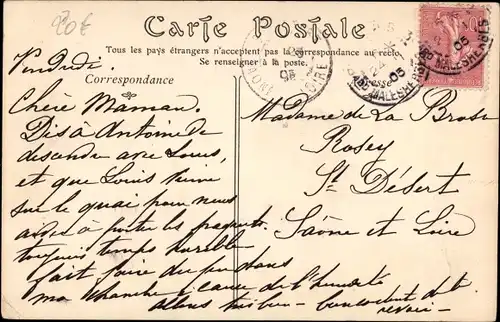 20€
Carte Postale
Tous les pays étrangers n'acceptent pas la correspondance au recto
Se renseigner à la poste.
Correspondance
Adresse
Vendredi.
Chère Maman.
Dis à Antoine de
descendre avec Louis,
et que Louis vienne
sur le quai pour nous
aider à porter les paquets
toujours temps horrible
fait faire du feu dans
ma chambre à cause de l'humidité
allons très bien - bien content de te
revoir -
Madame de La Brosse
Rosey
St Désert
Saône et Loire
BD MALESHERBES
05